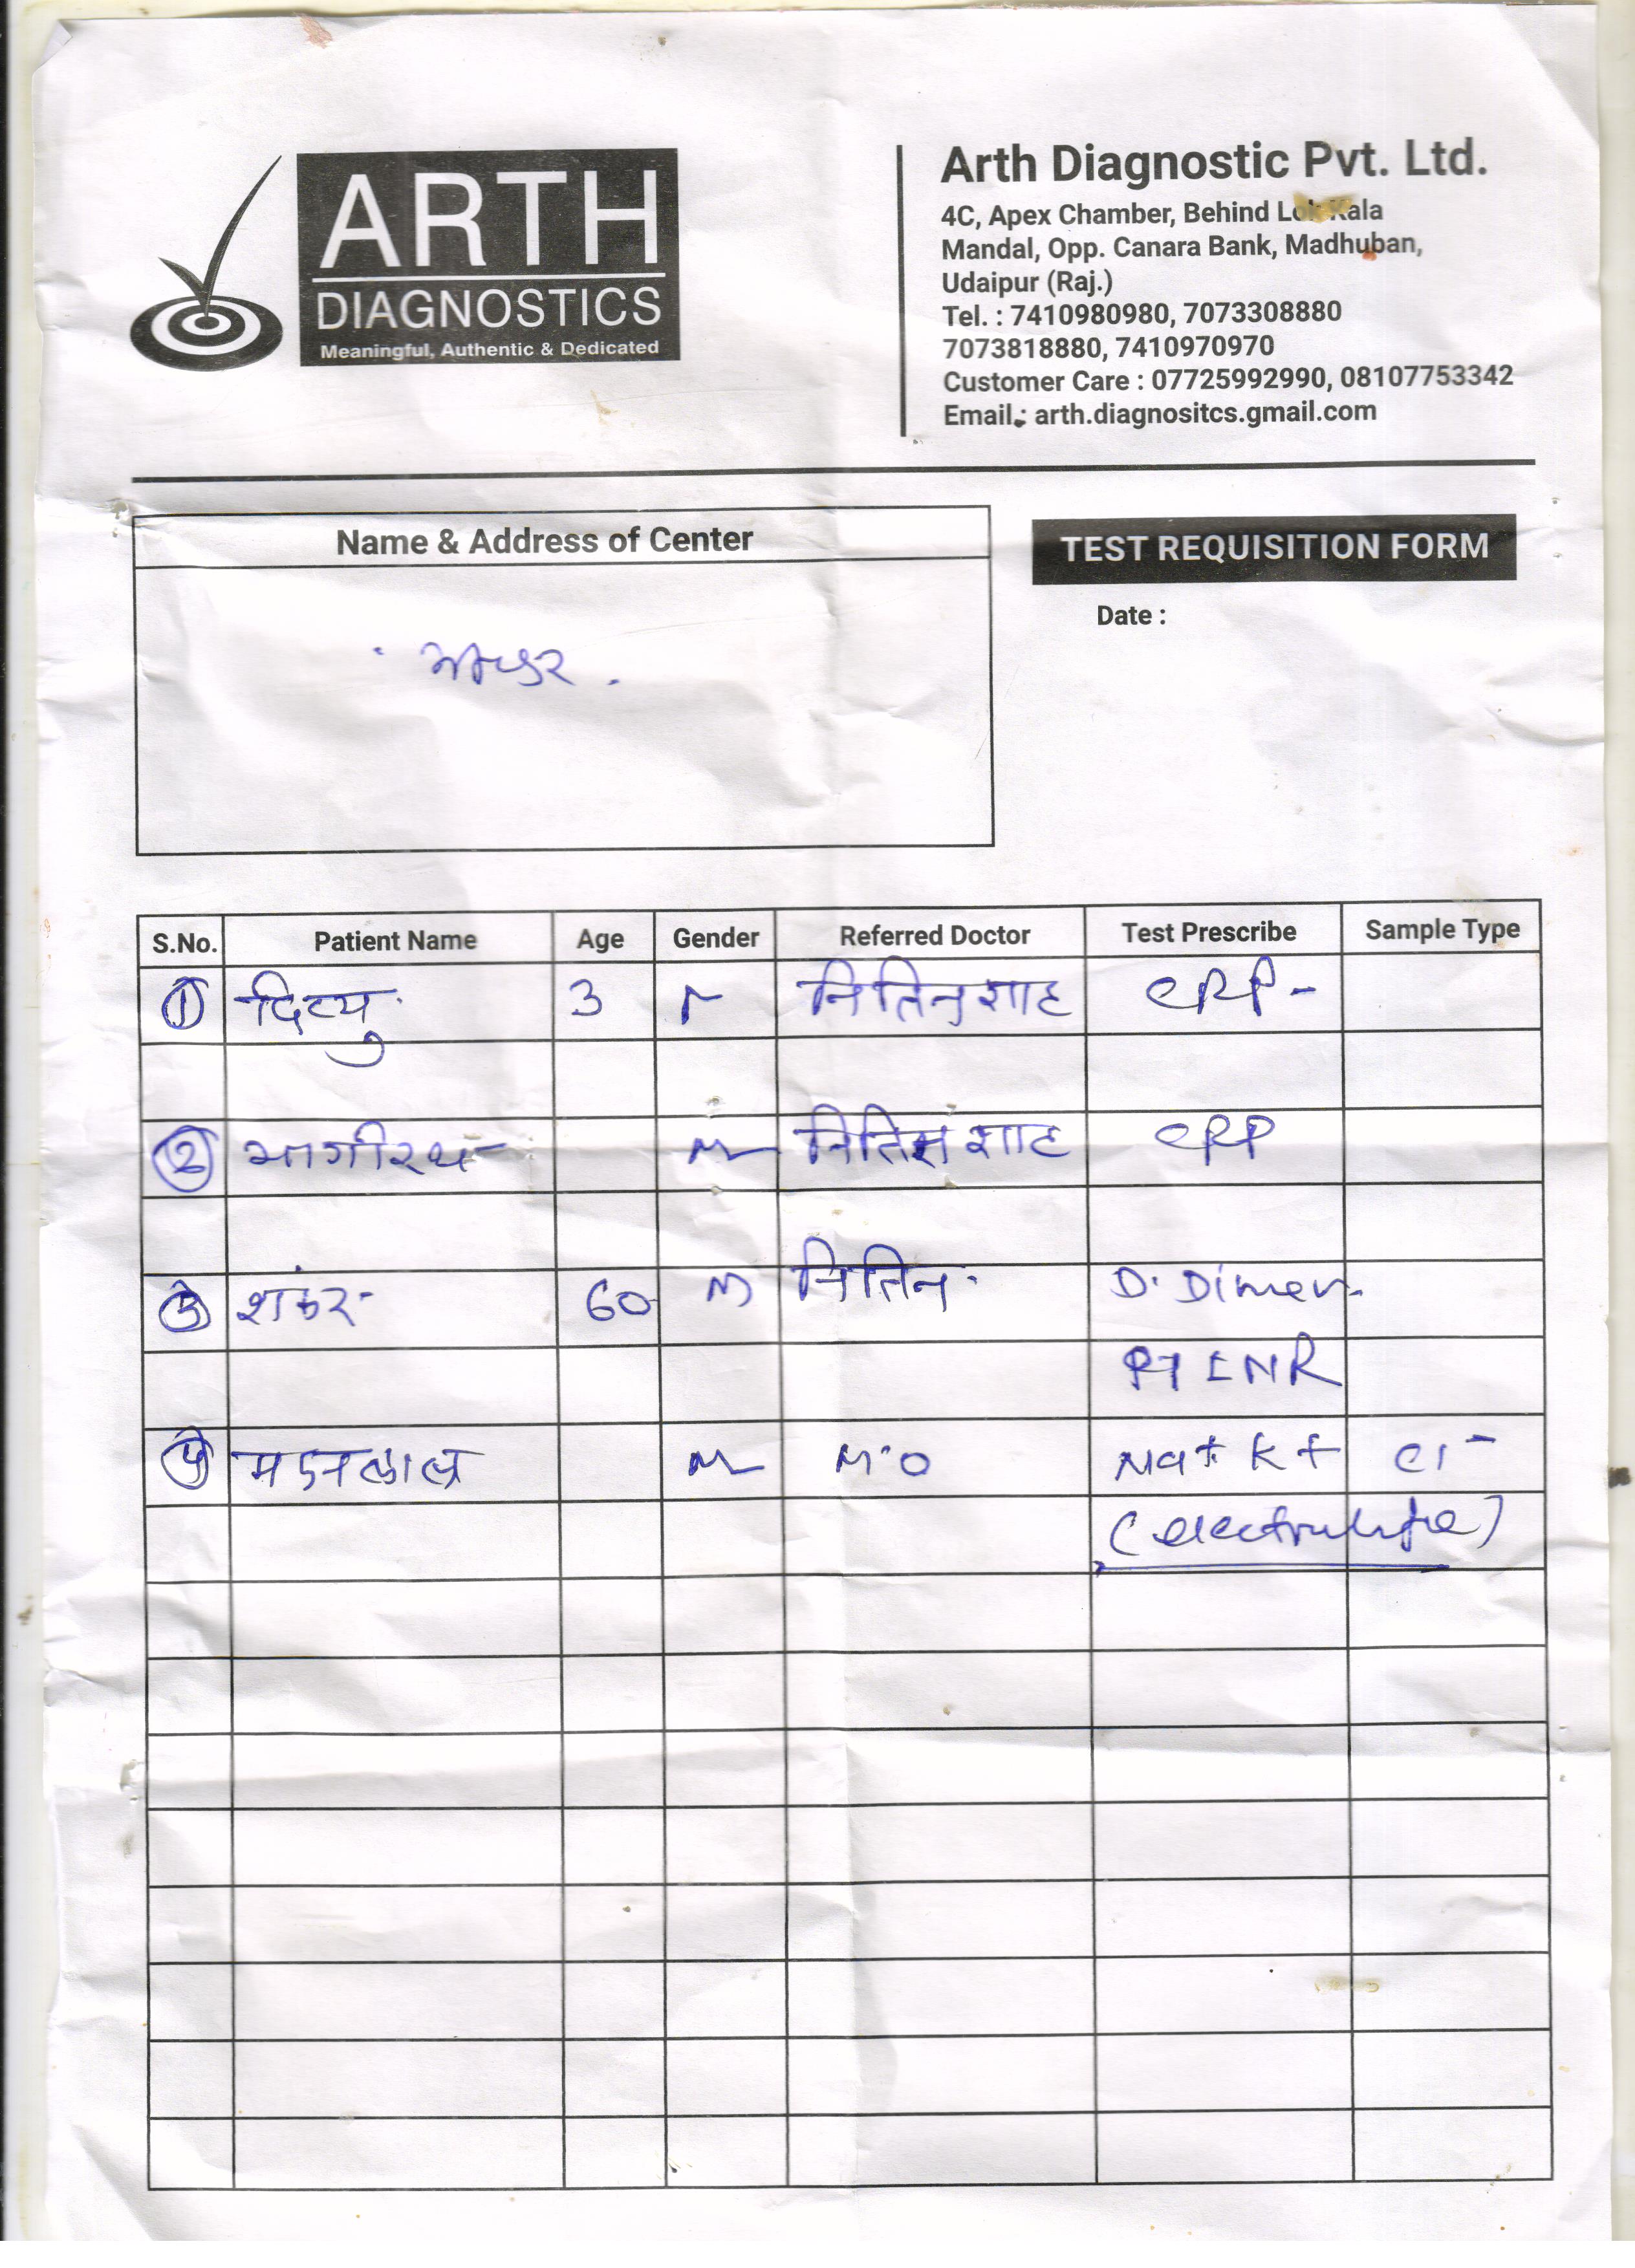 ARTH
DIAGNOSTICS
Meaningful, Authentic & Dedicated
Arth Diagnostic Pvt. Ltd.
4C, Apex Chamber, Behind Lok Kala
Mandal, Opp. Canara Bank, Madhuban,
Udaipur (Raj.)
Tel. : 7410980980, 7073308880
7073818880, 7410970970
Customer Care : 07725992990, 08107753342
Email : arth.diagnositcs.gmail.com
Name & Address of Center
TEST REQUISITION FORM
Date :
S.No. Patient Name Age Gender Referred Doctor Test Prescribe Sample Type
① दिव्यु 3 नितिन शाह CRP -
② भागीरथ M शाह CRP
③ शंकर 60 M नितिन D. Dimer
PT INR
④ M M.O Na+ K+ Cl-